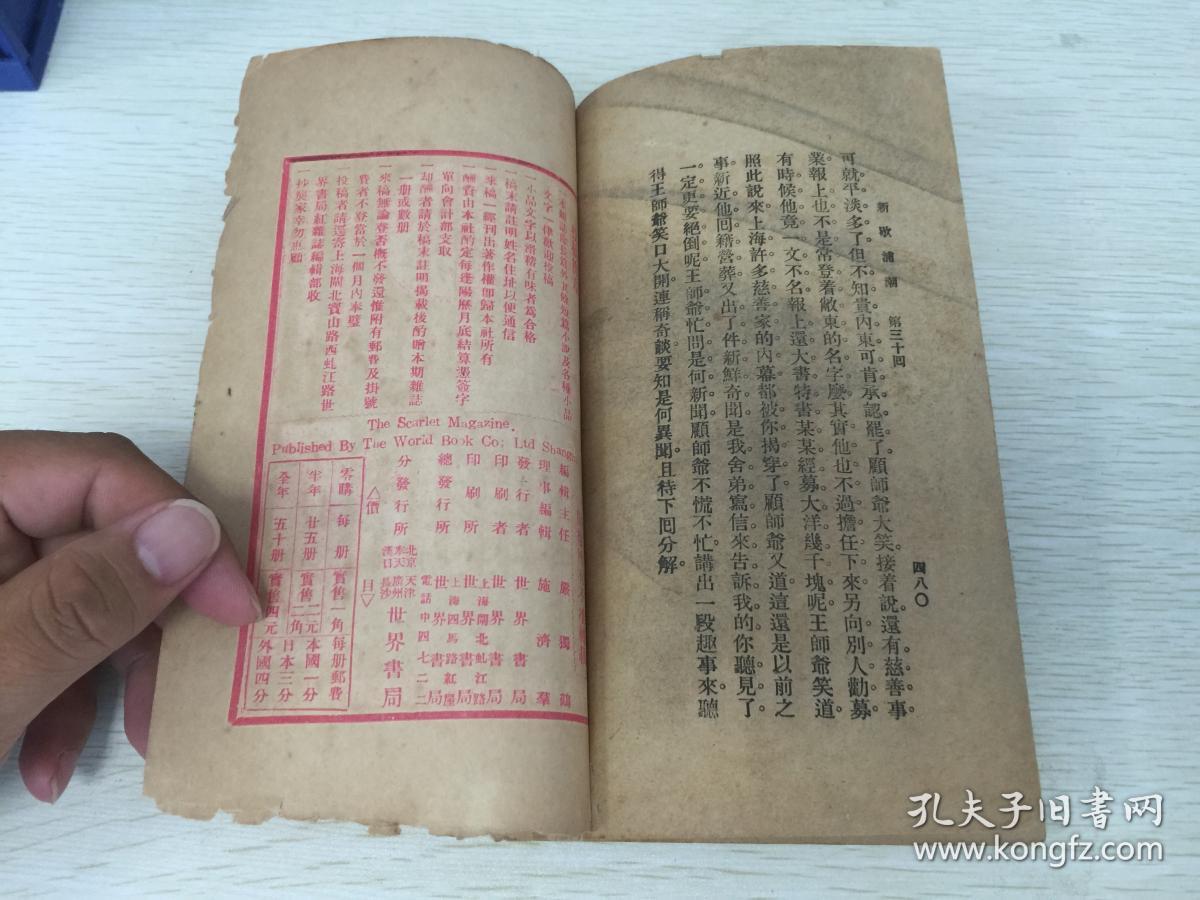 新歇浦潮　第三十回　四八〇
可就平淡多了但不知貴內東可肯承認罷了顧師爺大笑接着說還有慈善事
業報上也不是常登着敝東的名字麼其實他也不過擔任下來另向別人勸募
有時候他竟一文不名報上還大書特書某某經募大洋幾千塊呢王師爺笑道
照此說來上海許多慈善家的內幕都被你揭穿了顧師爺又道這還是以前之
事新近他回籍營葬又出了件新鮮奇聞是我舍弟寫信來告訴我的你聽見了
一定更要絕倒呢王師爺忙問是何新聞顧師爺不慌不忙講出一段趣事來聽
得王師爺笑口大開連稱奇談要知是何異聞且待下回分解
文字一律歡迎投稿
一小品文字以滑稽有味者爲合格
一稿末請註明姓名住址以便通信
一來稿一經刊出著作權卽歸本社所有
一酬資由本社酌定每逢陽歷月底結算憑簽字
單向會計部支取
一却酬者請於稿末註明揭載後酌贈本期雜誌
一册或數册
一來稿無論登否槪不發還惟附有郵費及掛號
費者不登當於一個月內奉璧
一投稿者請逕寄上海閘北寶山路西虬江路世
界書局紅雜誌編輯部收
一抄襲家幸勿惠顧
The Scarlet Magazine.
Published By The World Book Co; Ltd Shangh
編輯主任　嚴獨鶴
理事編輯　施濟羣
發行者　世界書局
印刷者　世界書局
印刷所　上海閘北虬江路世界書局
總發行所　上海四馬路紅屋世界書局
電話中四七二二
分發行所　北京　天津　奉天　廣州　漢口　長沙　世界書局
△價目▽
零購　每册　實售一角　每册郵費
半年　廿五册　實售二元二角　本國一分　日本三分
全年　五十册　實售四元　外國四分
孔夫子旧书网
www.kongfz.com